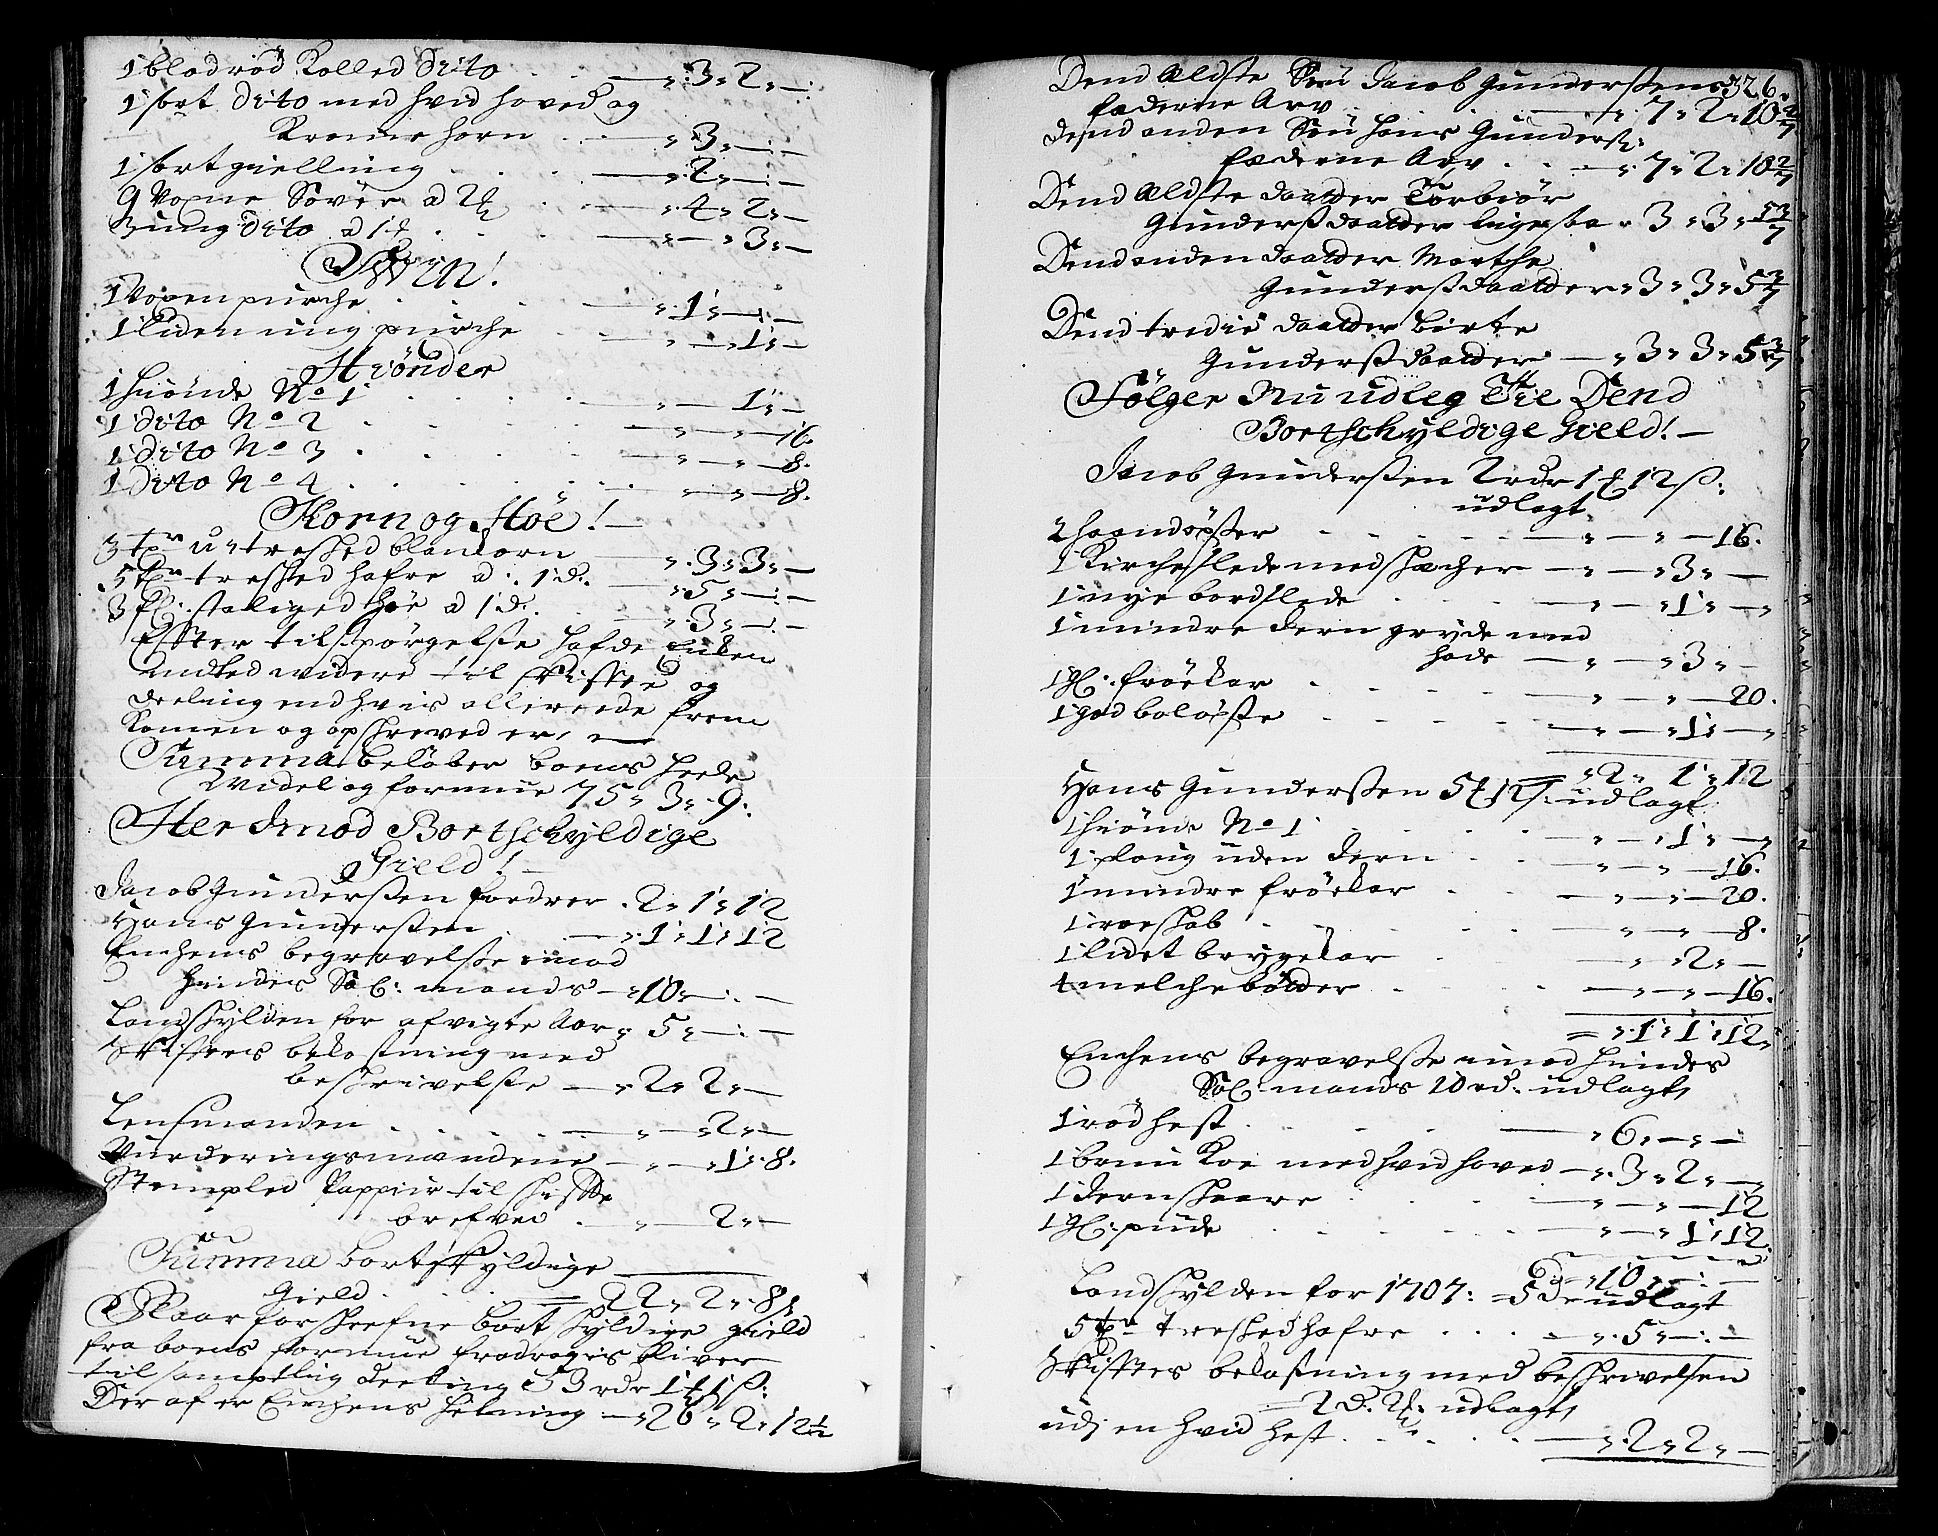 1 blod rød Kolled Dito — „ 3 „ 2 „ —
1 sort Dito med hvid hoved og
Kromehorn — „ 3 „ — : —
1 sort gielling — „ 2 „ — : —
9 Voxne Sover a 2 — „ 4 „ 2 „ —
3 ung Dito a 1 — „ — „ 3 „ —
Swin!
1 Voxen purche — „ 1 „ — : —
1 liden ung purche — „ — „ 1 „ —
Hiønder
1 hiønde No 1 — „ — 1 „ —
1 dito No 2 — „ — „ — 16.
1 dito No 3 — „ — „ — 8.
1 dito No 4 — „ — „ — 8.
Korn og Höe! —
3 tr u-tresked blankorn — „ 3 „ 3 „ —
5 tr tresked hafre a 1 d. — „ 5 „ — : —
3 staliged høe a 1 d. — „ 3 „ — : —
Effter tilspørgelse hafde Enken
indted widere til skiffte og
deeling end hvis allereede frem
komen og opskreved er,
Summa beløber boens heele
Widel og formue 75 „ 3 „ 9 :
Her Imod Bortschyldige
Gield! —
Jacob Gundersen fordrer . 2 „ 1 „ 12
Hans Gundersen — „ 1 „ 1 „ 12
Enchens begravelse imod
hindes Sal: mands — „ 10 „ — : —
Landskylden for afvigte Aar „ 5 „ — : —
Skifftes bekostning med
beskrivelse — „ 2 „ 2 „ —
Lensmanden — „ — „ 2 „ —
Vurderingsmændene — „ — „ 1 „ 8.
Stempled Pappiir til skiffte
brefved . „ — 2 „ —
Summa bortskyldige
Gield . 22 „ 2 „ 8
Naar forskrefne bort skyldige gield
fra boens formue fradragis bliver
til samptlig deeling 53 rdr 1 1 s:
Der af er Enchens helning — „ 26 „ 2 „ 12 ½
326.
Dend Ældste Søn Jacob Gundersens
fæderne Arv — „ 7 „ 2 „ 10 2/7
Dend anden Søn Hans Gunders:
fæderne Arv — „ 7 „ 2 „ 10 2/7
Dend Ældste daatter Torbiør
Gundersdaatter ligesaa „ 3 „ 3 „ 5 3/7
Dend anden daatter Marthe
Gundersdaatter „ 3 „ 3 „ 5 3/7
Dend tredie daatter Birte
Gundersdaatter — „ 3 „ 3 „ 5 3/7
Følger Nu udleg Til Dend
Bortschyldige Gield! —
Jacob Gundersen 2 rdr 1 12 s:
udlagt
2 haandøxser — „ — „ — 16.
1 Kirche slede med skocher — „ — „ 3 „ —
1 nye bordslede — „ — „ 1 „ — „
1 mindre Jern gryde med
hode — „ — „ 3 „ —
1 gl: frøekar — „ — „ — 20.
1 god boløxse — „ — „ 1 „ — „
„ 2 „ 1 „ 12
Hans Gundersen 5 12 s: udlagt
1 hiønde No 1 — „ — „ 1 „ — „
1 ploug uden Jern — „ — „ — 16.
1 mindre frøekar — „ — „ — 20.
1 roeskab — „ — „ — 8.
1 lidet bryggekar — „ — „ 2 „ —
4 melchebøtter — „ — „ — 16.
„ 1 „ 1 „ 12 „
Enchens begravelse imod hindes
Sal: mands 10 rd: udlagt,
1 rød hest — „ 6 „ — „ —
1 brun Koe med hvid hoved — „ 3 „ 2 „ — „
1 Jern skaare — „ — „ — 12
1 gl: pude — „ — „ 1 „ 12.
„ 10 „ — : —
Landskylden for 1707: 5 d udlagt
5 tr tresked hafre — „ 5 „ — : —
Skifftes bekostning med beskrivelsen
2 D. 2 : udlagt,
udj en hvid hest — „ 2 „ 2 „ —